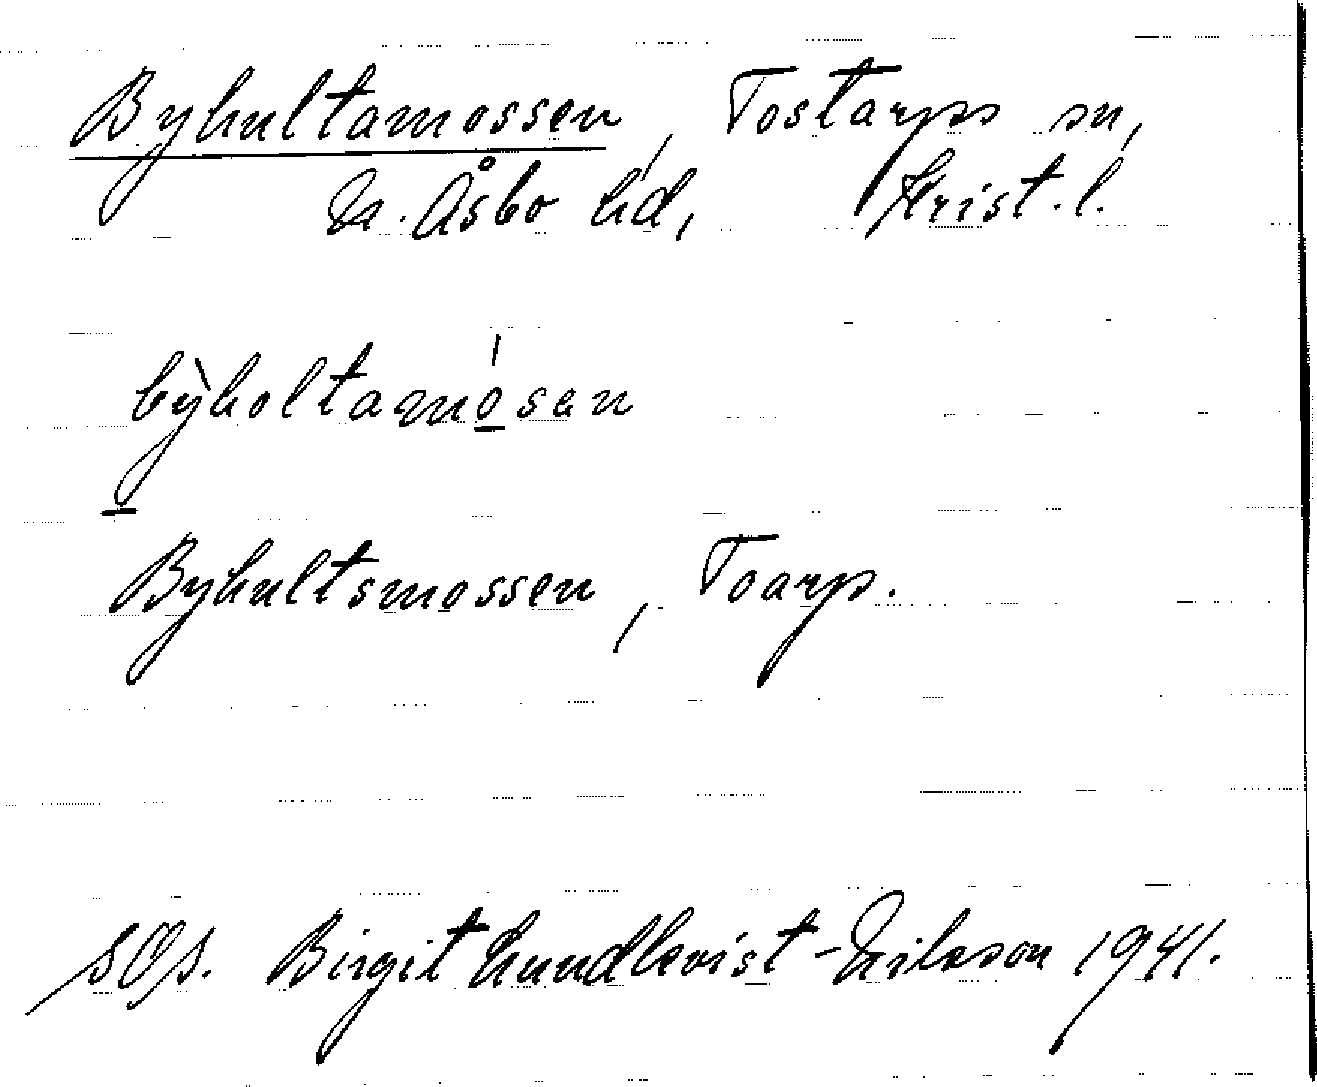 Byhultamossen, Tostarps sn,
N. Åsbo hd, Krist. l.
bỳholtamósen
Byhultsmossen, Toarp.
Birgit Lundkvist-Nilsson 1941.